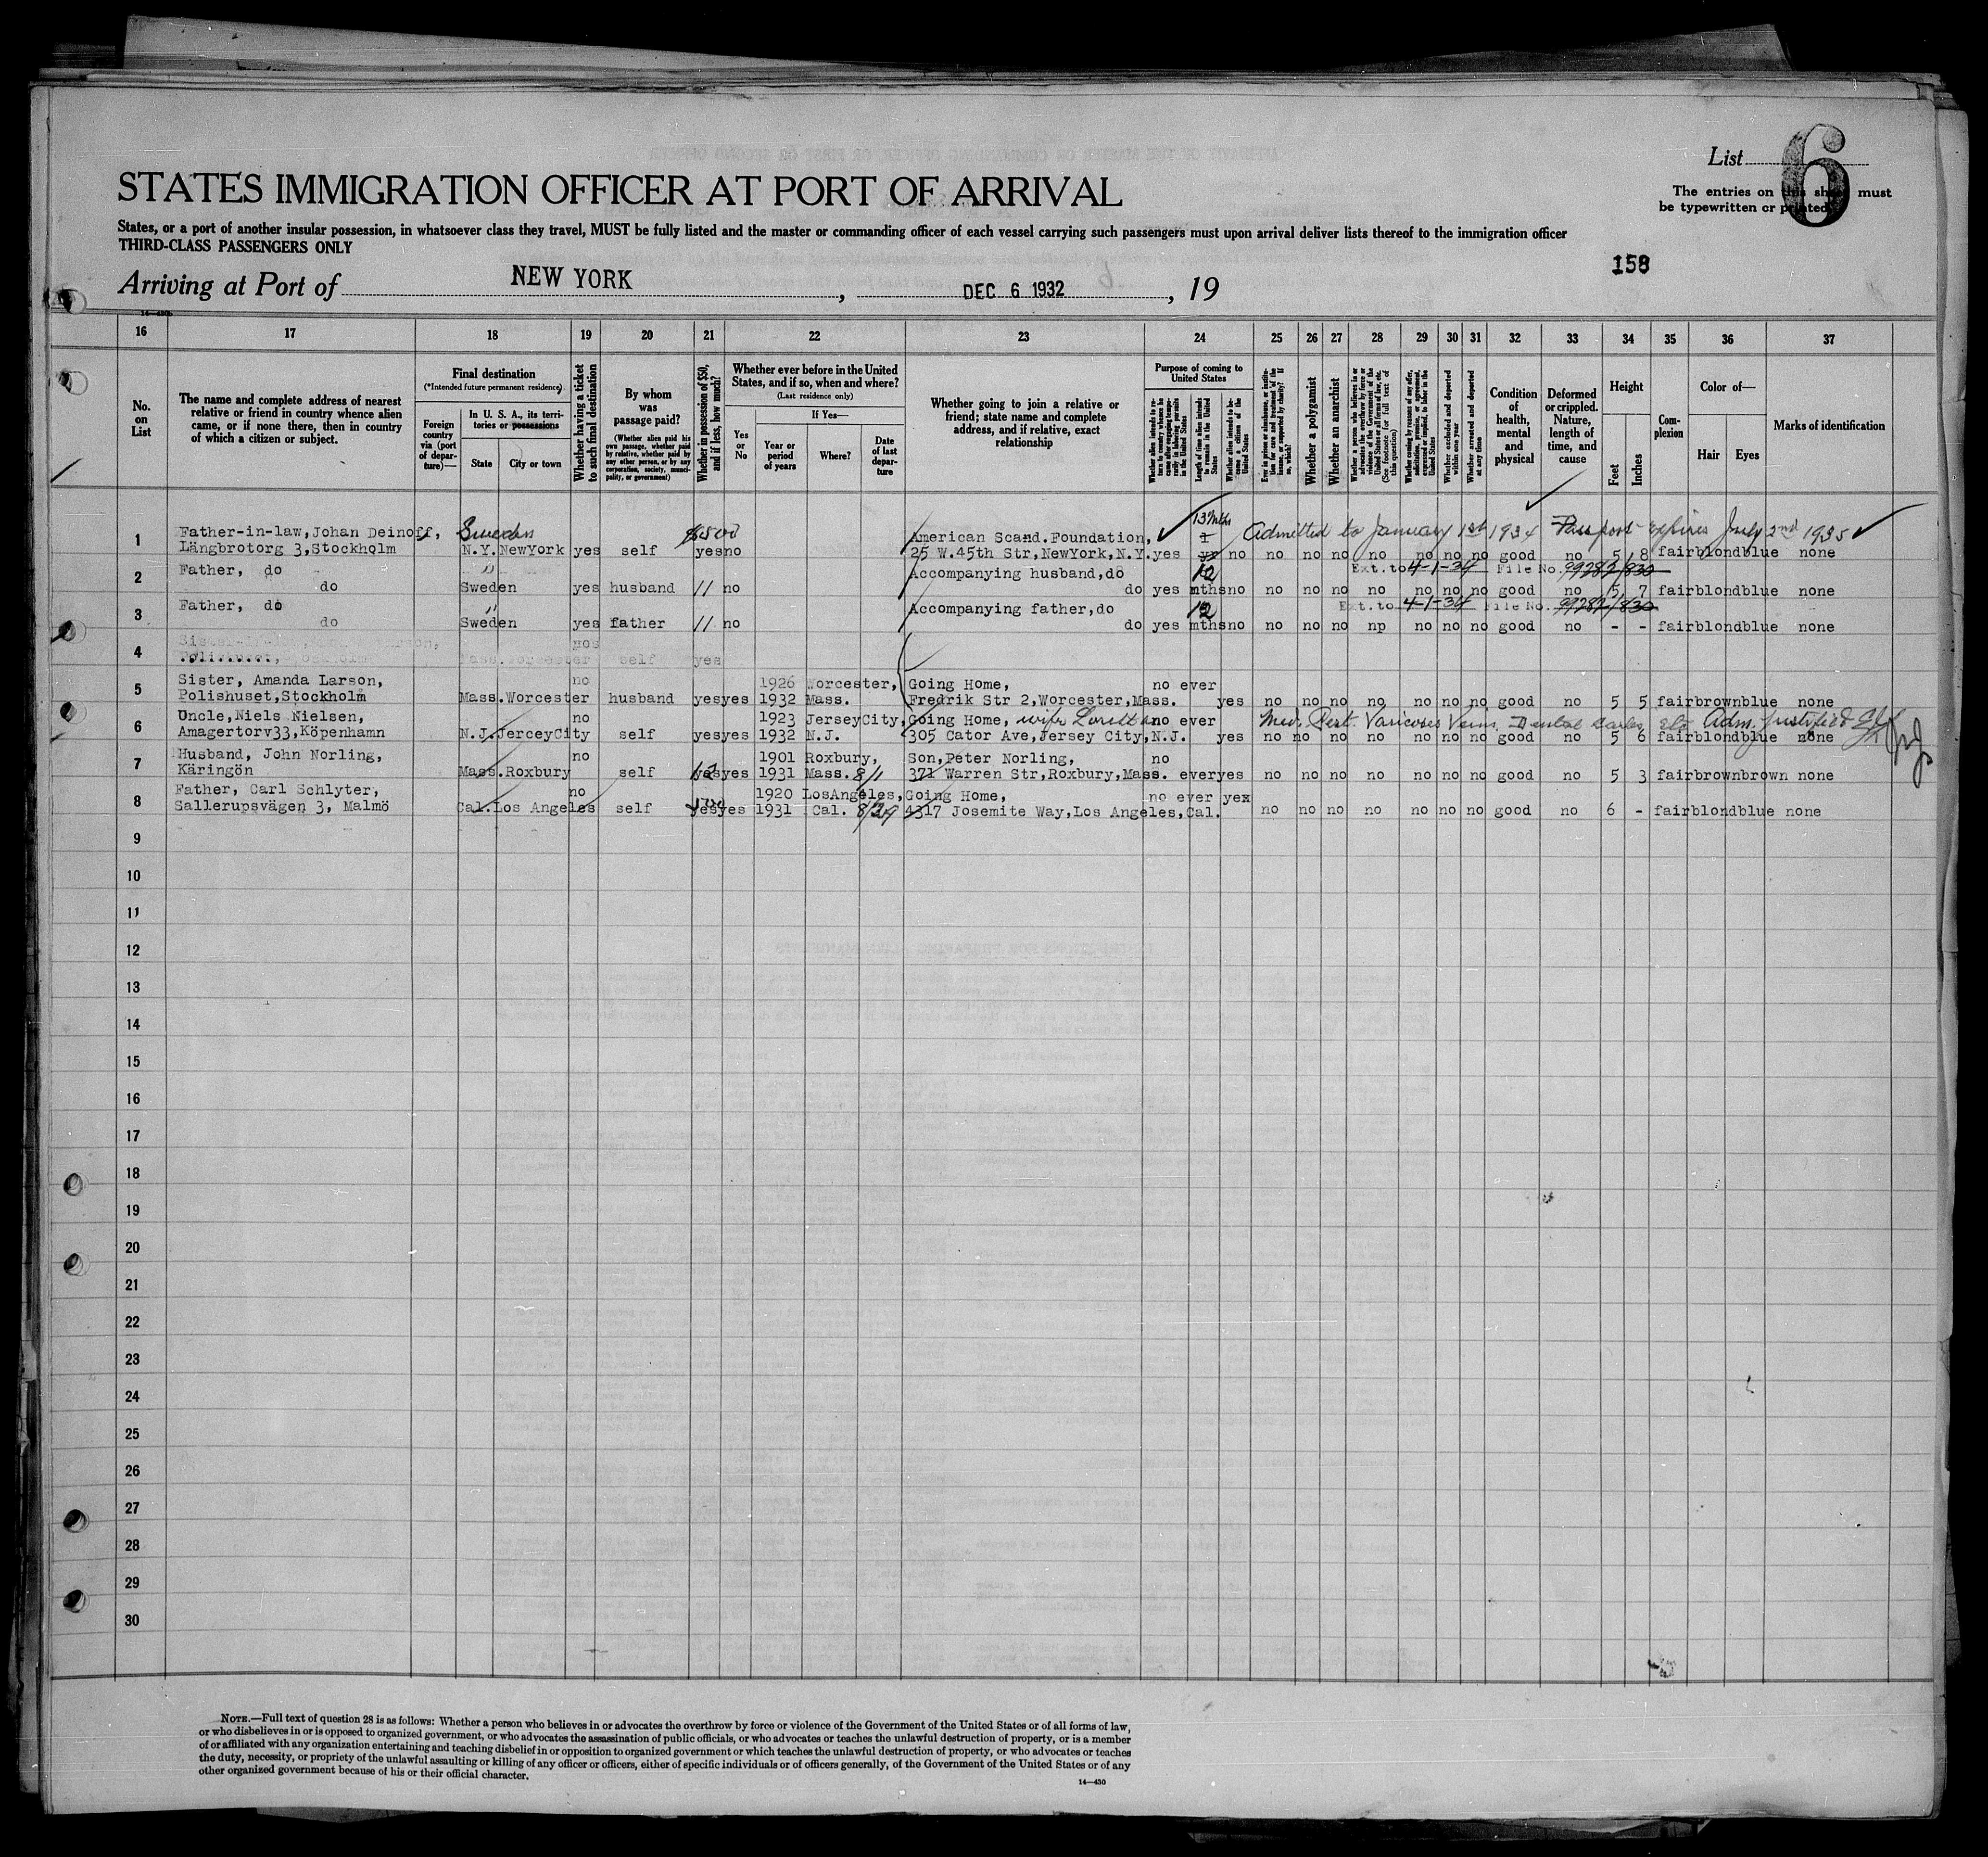 List 6
STATES IMMIGRATION OFFICER AT PORT OF ARRIVAL
The entries on this sheet must
be typewritten or printed.
States, or a port of another insular possession, in whatsoever class they travel, MUST be fully listed and the master or commanding officer of each vessel carrying such passengers must upon arrival deliver lists thereof to the immigration officer
THIRD-CLASS PASSENGERS ONLY
158
Arriving at Port of NEW YORK, DEC 6 1932, 19
16 17 18 19 20 21 22 23 24 25 26 27 28 29 30 31 32 33 34 35 36 37
No. on List
The name and complete address of nearest relative or friend in country whence alien came, or if none there, then in country of which a citizen or subject.
Final destination
(*Intended future permanent residence)
Foreign country via (port of departure)—
In U. S. A., its territories or possessions
State
City or town
Whether having a ticket to such final destination
By whom was passage paid?
(Whether alien paid his own passage, whether paid by relative, whether paid by any other person, or by any corporation, society, municipality, or government)
Whether in possession of $50, and if less, how much?
Whether ever before in the United States, and if so, when and where?
(Last residence only)
Yes or No
If Yes—
Year or period of years
Where?
Date of last departure
Whether going to join a relative or friend; state name and complete address, and if relative, exact relationship
Purpose of coming to United States
Length of time alien intends to remain in the United States
Whether alien intends to become a citizen of the United States
Whether a polygamist
Whether an anarchist
Whether excluded and deported within one year
Whether arrested and deported at any time
Condition of health, mental and physical
Deformed or crippled. Nature, length of time, and cause
Height
Feet
Inches
Complexion
Color of—
Hair
Eyes
Marks of identification
13 mths
Father-in-law,Johan Deinoff, Sweden $500 American Scand.Foundation, 1 Admitted to January 1st 1934 Passport expires July 2nd 1935
1 Långbrotorg 3,Stockholm N.Y. NewYork yes self yes no 25 W.45th Str,NewYork,N.Y. yes yr no no no no no no no no good no 5 8 fair blond blue none
Father, do " Accompanying husband,do 12 Ext.to 4-1-34 File No. 99282/830
2 do Sweden yes husband // no do yes mths no no no no no no no no good no 5 7 fair blond blue none
Father, do " Accompanying father,do 12 Ext.to 4-1-34 File No. 99282/830
3 do Sweden yes father // no do yes mths no no no no np no no no good no - - fair blond blue none
4 Mass. Worcester self yes
Sister, Amanda Larson, no 1926 Worcester, Going Home, no ever
5 Polishuset,Stockholm Mass. Worcester husband yes yes 1932 Mass. Fredrik Str 2,Worcester,Mass. yes no no no no no no no good no 5 5 fair brown blue none
Uncle,Niels Nielsen, no 1923 JerseyCity, Going Home, wife no ever Med. Cert. Varicose Veins Dental Caries etc Adm.
6 Amagertorv33,Köpenhamn N.J. JerceyCity self yes yes 1932 N.J. 305 Cator Ave,Jersey City,N.J. yes no no no no no no no good no 5 6 fair blond blue none
Husband, John Norling, no 1901 Roxbury, Son,Peter Norling, no
7 Käringön Mass. Roxbury self yes yes 1931 Mass. 8/1 371 Warren Str,Roxbury,Mass. ever yes no no no no no no no good no 5 3 fair brown brown none
Father, Carl Schlyter, no 1920 LosAngeles, Going Home, no ever yex
8 Sallerupsvägen 3, Malmö Cal. Los Angeles self yes yes 1931 Cal. 8/29 4317 Josemite Way,Los Angeles,Cal. no no no no no no no good no 6 - fair blond blue none
9
10
11
12
13
14
15
16
17
18
19
20
21
22
23
24
25
26
27
28
29
30
NOTE.—Full text of question 28 is as follows: Whether a person who believes in or advocates the overthrow by force or violence of the Government of the United States or of all forms of law,
or who disbelieves in or is opposed to organized government, or who advocates the assassination of public officials, or who advocates or teaches the unlawful destruction of property, or is a member
of or affiliated with any organization entertaining and teaching disbelief in or opposition to organized government or which teaches the unlawful destruction of property, or who advocates or teaches
the duty, necessity, or propriety of the unlawful assaulting or killing of any officer or officers, either of specific individuals or of officers generally, of the Government of the United States or of any
other organized government because of his or their official character.
14—430